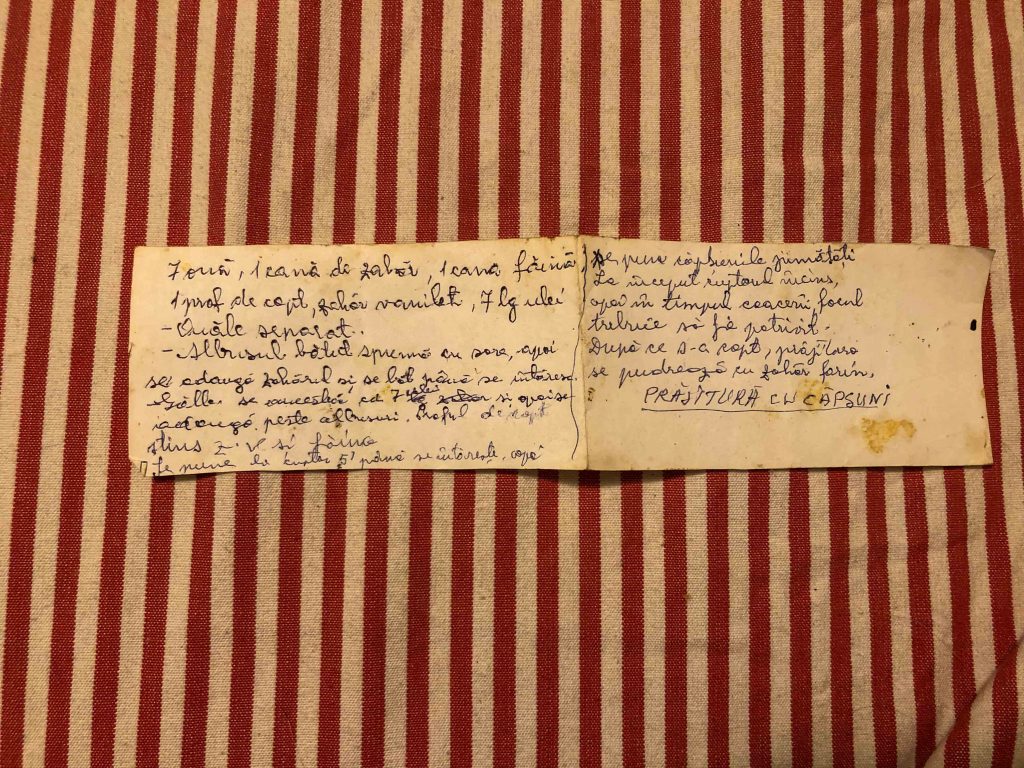 7 ouă, 1 cană de zahăr, 1 cană făină
1 praf de copt, zahăr vanilat, 7 lg ulei
- Ouăle separat.
- Albusul bătut spumă cu sare, apoi
se adaugă zahărul si se bat până se întăresc
Gălb. se amestecă cu 7 ulei si apoi se
adaugă peste albusuri. Praful de copt
stins z.v si făina
Se pune la cuptor 5' până se întăreşte, apoi
Se pun căpsunile jumătăţi
La început cuptorul încins,
apoi în timpul coacerii, focul
trebuie să fie potrivit.
După ce s-a copt, prăjitura
se pudrează cu zahăr farin.
PRĂJITURĂ CU CĂPSUNI